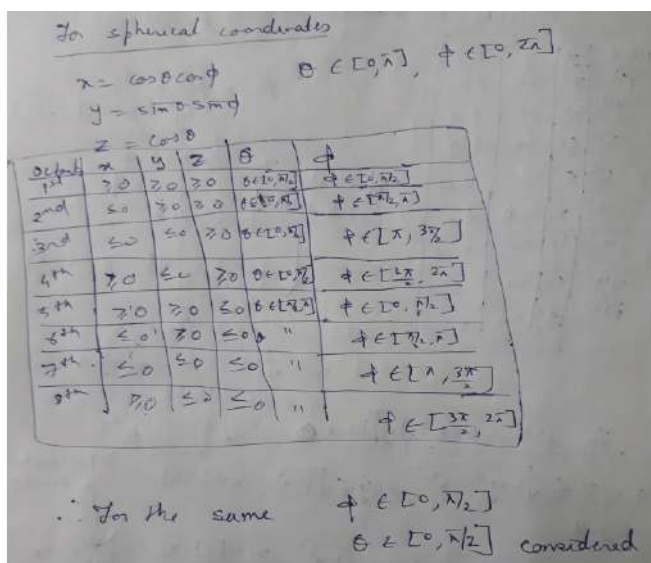 For spherical coordinates
x = cosθcosϕ θ ∈ [0,π], ϕ ∈ [0, 2π].
y = sinθsinϕ
z = cosθ
Octant x y z θ ϕ
1st ≥0 ≥0 ≥0 θ∈[0,π/2] ϕ ∈[0,π/2]
2nd ≤0 ≥0 ≥0 θ∈[0,π/2] ϕ ∈[π/2,π]
3rd ≤0 ≤0 ≥0 θ∈[0,π/2] ϕ ∈[π, 3π/2]
4th ≥0 ≤0 ≥0 θ∈[0,π/2] ϕ ∈[3π/2, 2π]
5th ≥0 ≥0 ≤0 θ∈[π/2,π] ϕ ∈[0, π/2]
6th ≤0 ≥0 ≤0 " ϕ ∈[π/2,π]
7th ≤0 ≤0 ≤0 " ϕ ∈[π, 3π/2]
8th ≥0 ≤0 ≤0 " ϕ ∈[3π/2, 2π]
∴ For the same ϕ ∈ [0, π/2]
θ ∈ [0, π/2] considered